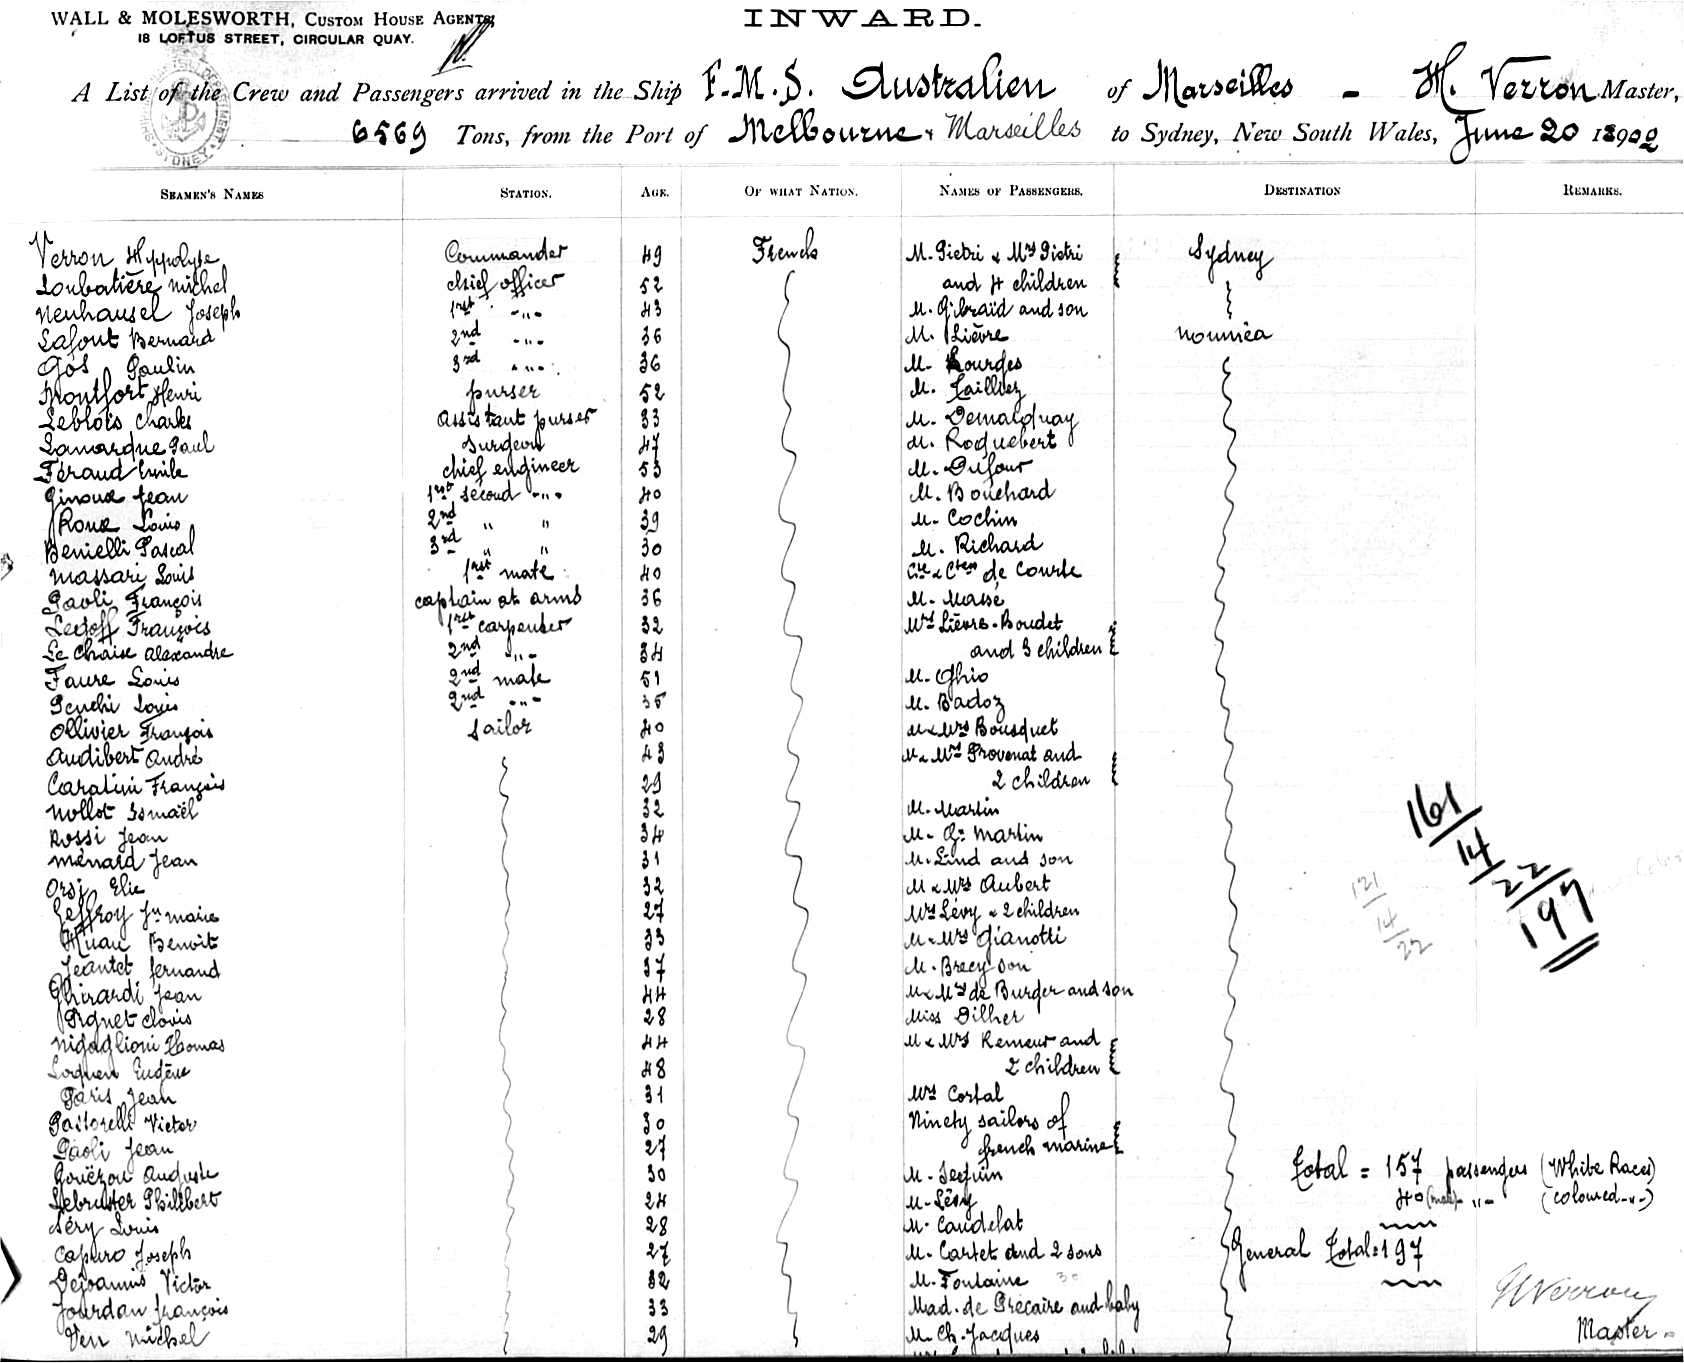 WALL & MOLESWORTH, CUSTOM HOUSE AGENTS,
18 LOFTUS STREET, CIRCULAR QUAY.
INWARD.
A List of the Crew and Passengers arrived in the Ship F.M.S. Australien of Marseilles - H. Verron Master,
6569 Tons, from the Port of Melbourne & Marseilles to Sydney, New South Wales, June 20 18902
SEAMEN'S NAMES STATION. AGE. OF WHAT NATION. NAMES OF PASSENGERS. DESTINATION REMARKS.
Verron Hyppolyte Commander 49 French M. Pietri & Mrs Pietri Sydney
Loubatière Michel chief officer 52 and 4 children
Neuhausel Joseph 1rst -"- 43 M. Gibraïd and son
Lafont Bernard 2nd -"- 36 M. Lièvre Nouméa
Gos Paulin 3rd -"- 36 M. Lourges
Montfort Henri purser 52 M. Tailliez
Leblois Charles assistant purser 33 M. Demalquay
Lamarque Paul surgeon 47 M. Roquebert
Féraud Emile chief engineer 53 M. Dufour
Ginoux Jean 1rst second -"- 40 M. Bouchard
Roux Louis 2nd " " 39 M. Cochin
Benielli Pascal 3rd " " 30 M. Richard
Massari Louis 1rst mate 40 Cte & Ctess de Courte
Paoli François captain at arms 36 M. Massé
Ledoff François 1rst carpenter 32 Mrs Lièvre-Boudet
Le Chaise Alexandre 2nd -"- 34 and 3 children
Faure Louis 2nd mate 51 M. Ghio
Penchi Louis 2nd -"- 35 M. Badoz
Ollivier François sailor 40 M & Mrs Bousquet
Audibert André 43 M & Mrs Provenat and
Caratini François 29 2 children
Nollot Ismaël 32 M. Martin
Rossi Jean 34 M. Gn Martin
Ménard Jean 31 M. Lind and son
Orsi Elie 32 M & Mrs Aubert
Jeffroy Jn Marie 27 Mrs Lévy & 2 children
Huau Benoit 33 M & Mrs Gianotti
Jeantet fernand 37 M. Brecy son
Ghirardi Jean 44 M & Mrs de Burger and son
Pignet Clovis 28 Miss Dilher
Nigaglioni Thomas 44 M & Mrs Remeur and
Loquen Eugène 48 2 children
Paris Jean 31 Mrs Cortal
Pastorelli Victor 30 Ninety sailors of
Paoli Jean 27 french marine
Gouëzou Auguste 30 M. Seguin
Lebruster Philibert 24 M. Lévy
Séry Louis 28 M. Caudelat
Capuro Joseph 27 M. Cartet and 2 sons
Dejoannis Victor 32 M. Fontaine 30
Jourdan françois 33 Mad. de Précaire and baby
Ven Michel 29 M. Ch. Jacques
161
14
22
197
121
14
22
Total = 157 passengers (White Races)
40 (male) -"- (coloured -"-)
General Total = 197
HVerron
Master